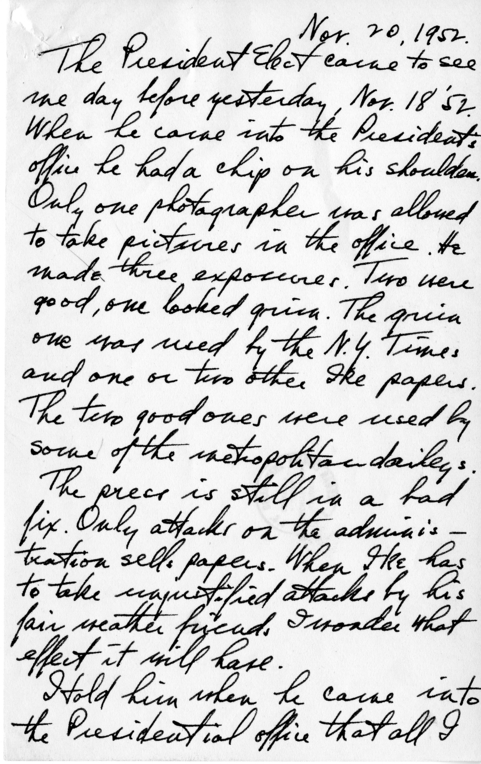 Nov. 20, 1952.
The President Elect came to see
me day before yesterday, Nov. 18 '52.
When he came into the President's
office he had a chip on his shoulder.
Only one photographer was allowed
to take pictures in the office. He
made three exposures. Two were
good, one looked grim. The grim
one was used by the N.Y. Times
and one or two other Ike papers.
The two good ones were used by
some of the metropolitan daileys.
The press is still in a bad
fix. Only attacks on the adminis-
tration sells papers. When Ike has
to take unjustified attacks by his
fair weather friends I wonder what
effect it will have.
I told him when he came into
the Presidential office that all I